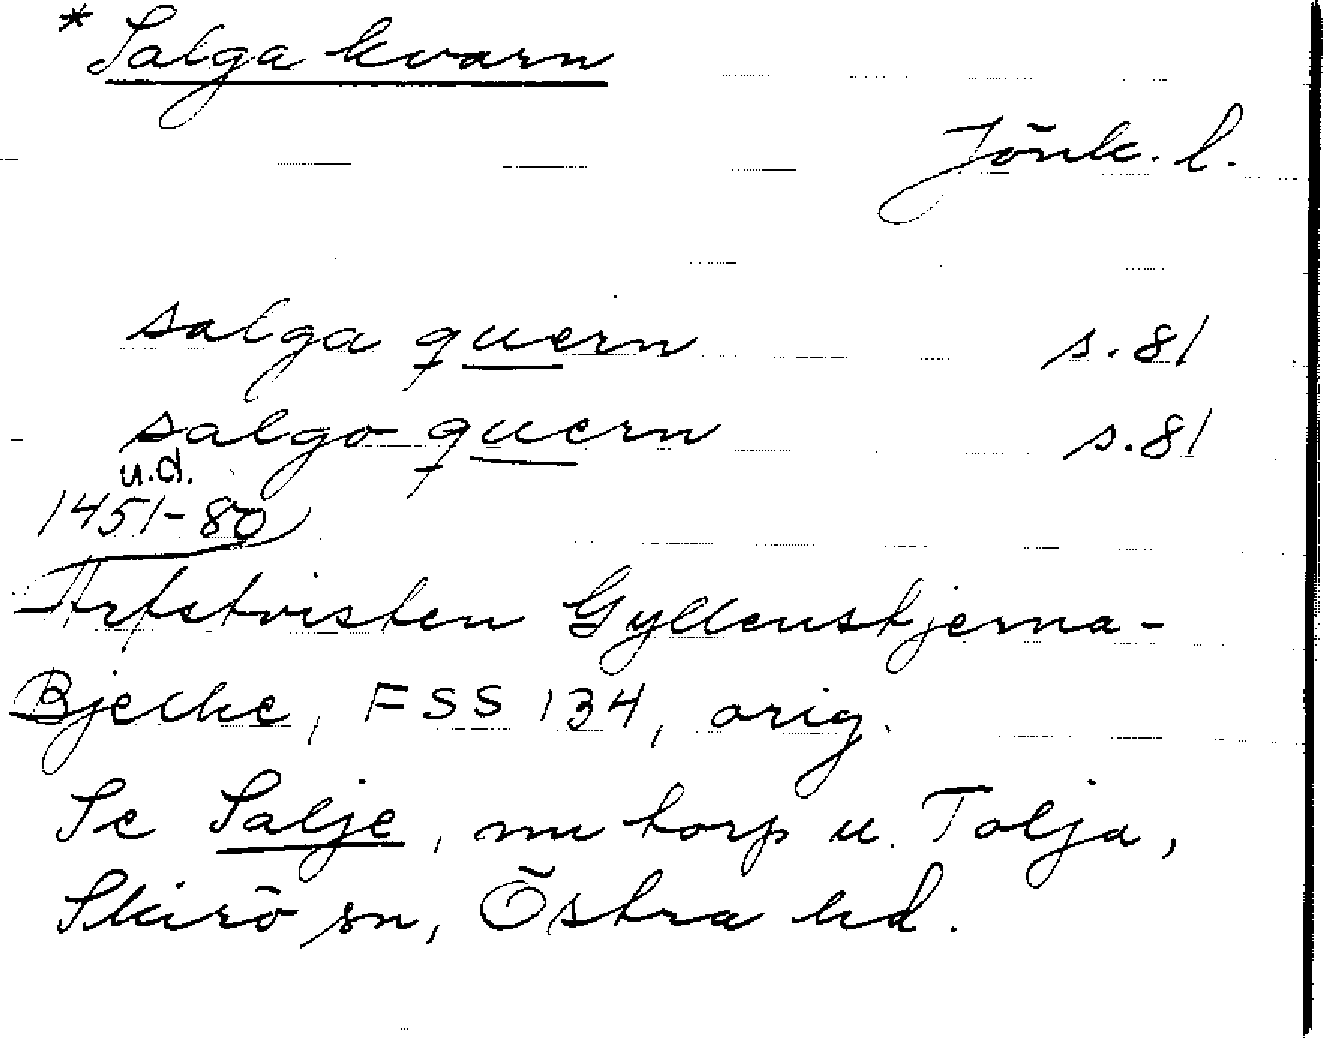 * Salga kvarn
Jönk. l.
salga quern s. 81
salgo quern s. 81
u.d.
1451-80
Arfstvisten Gyllenstjerna-
Bjelke, FSS 134, orig.
Se Salje, nu torp u. Tolja,
Skirö sn, Östra hd.